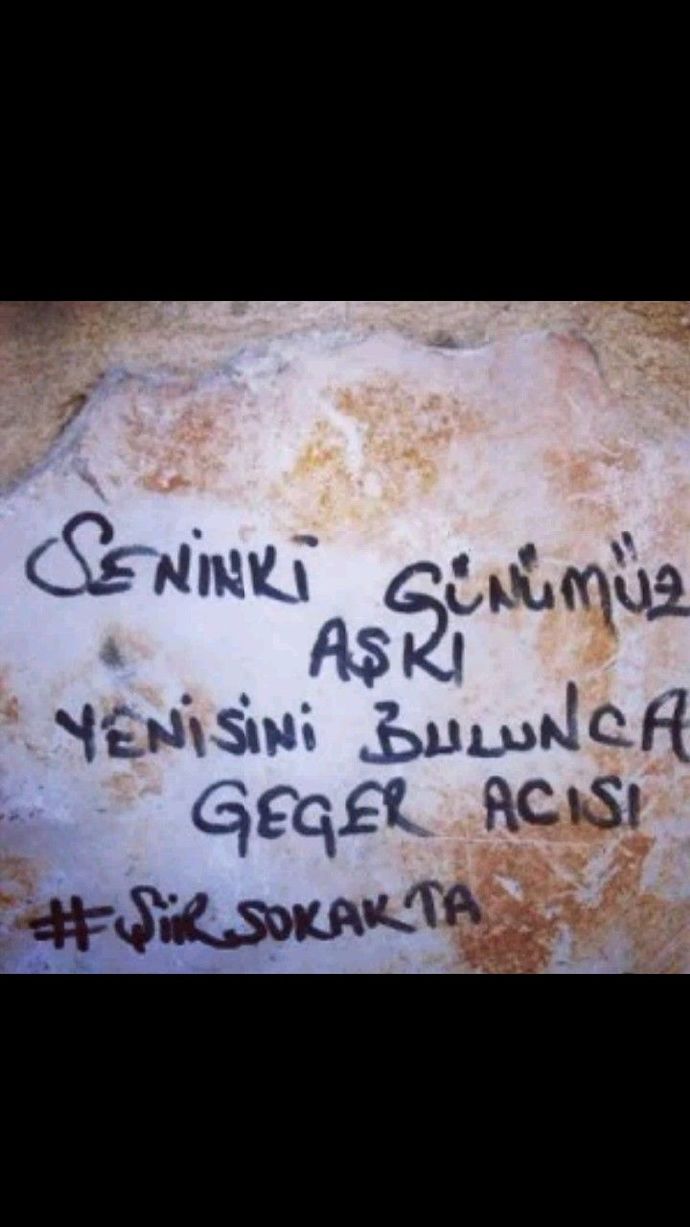 SENİNKİ GÜNÜMÜZ
AŞKI
YENİSİNİ BULUNCA
GEÇER ACISI
#ŞİİRSOKAKTA